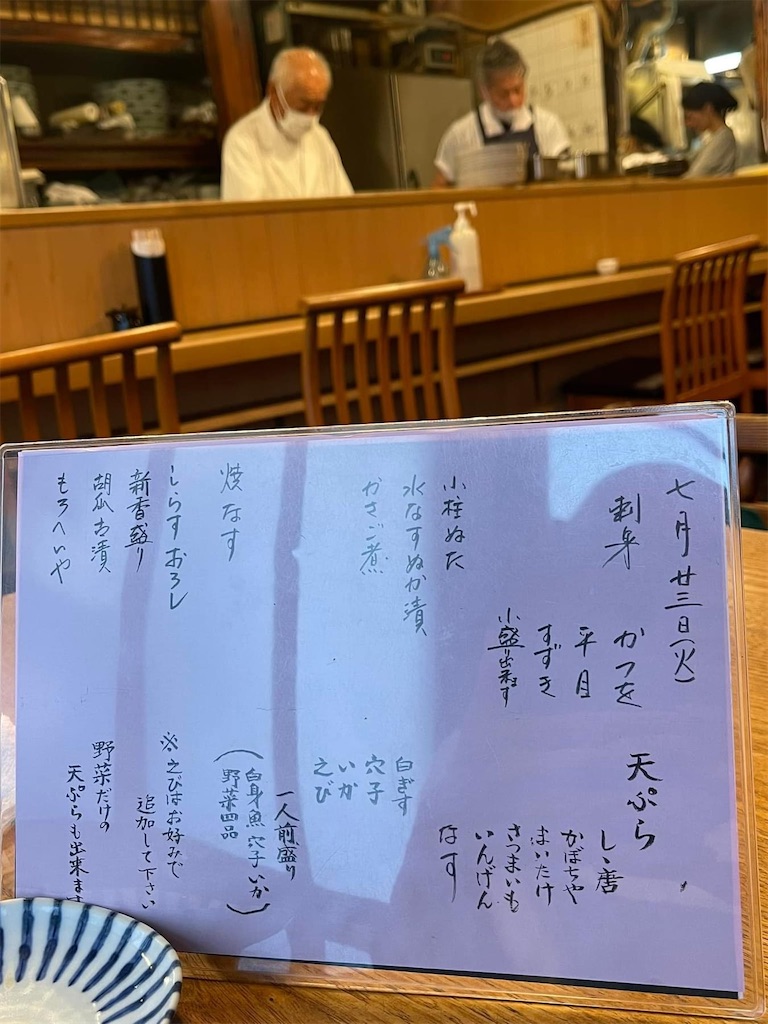 七月廿三日(火)
刺身
かつを
平目
すずき
小盛り出来ます
小柱ぬた
水なすぬか漬
かさご煮
焼なす
しらすおろし
新香盛り
胡瓜古漬
もろへいや
天ぷら
しゝ唐
かぼちや
まいたけ
さつまいも
いんげん
なす
白ぎす
穴子
いか
えび
一人前盛り
(白身魚 穴子 いか
野菜四品)
※えびはお好みで
追加して下さい
野菜だけの
天ぷらも出来ます